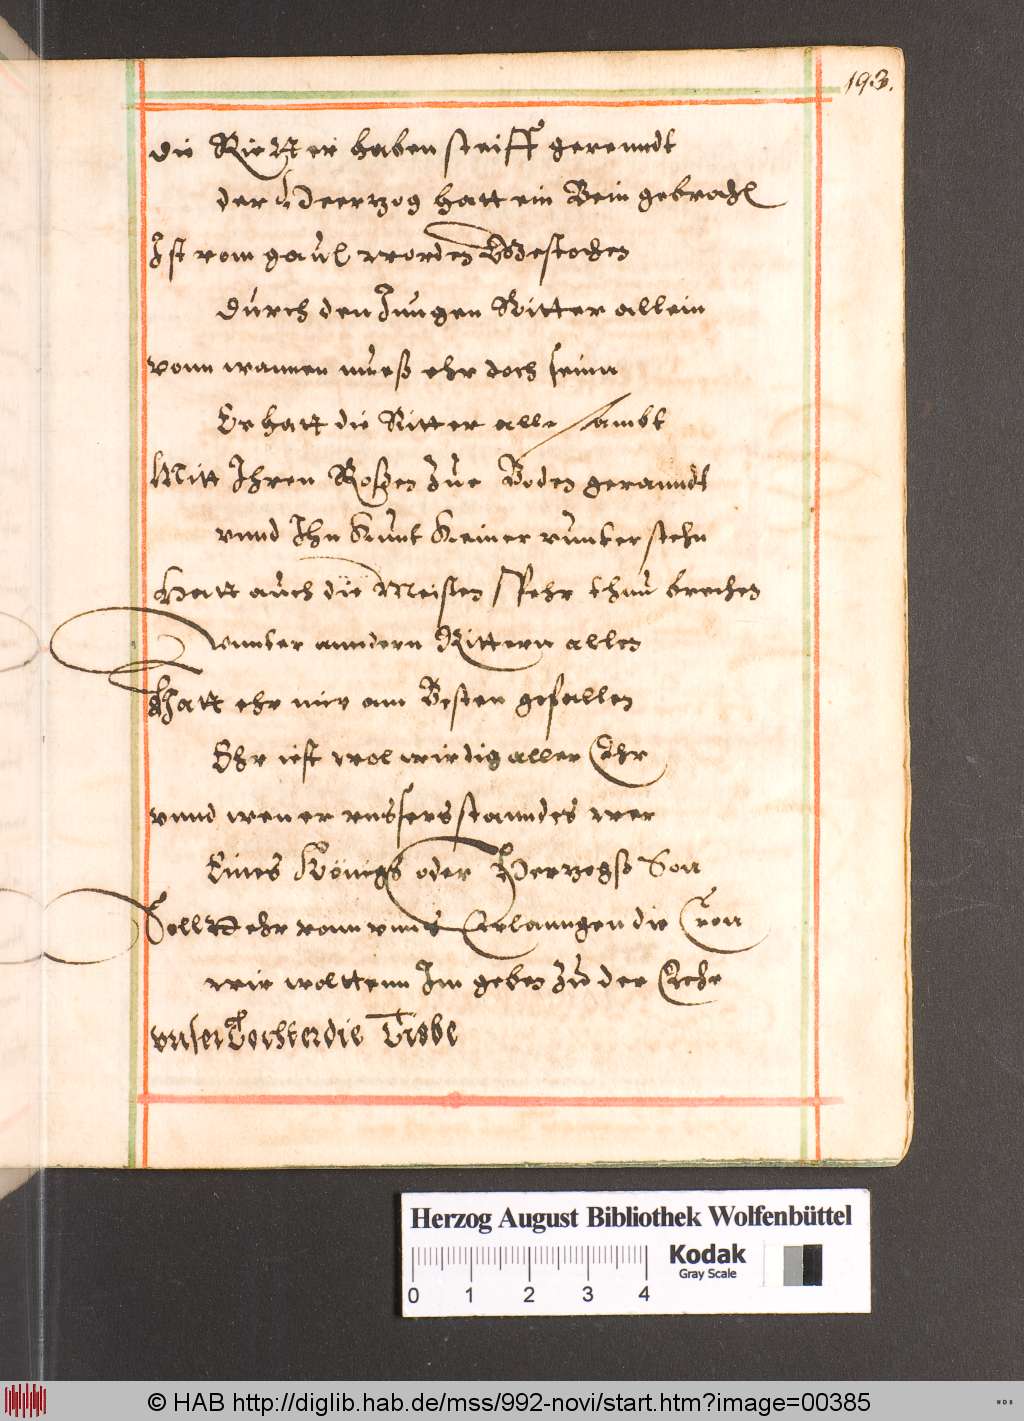 193.
die Rietter haben steiff gerenndt
der Heertzog hatt ein Bein gebrochen
Ist vom gaul worden Gestochen
durch den Jungen Ritter allein
vonn wannen mueß ehr doch seinn
Er hatt die Ritter alle sambt
Mitt Ihren Roßen Zue Boden geranndt
vnnd Ihn Kunt Keiner vnnterstehn
Hatt auch die Meisten Spehr thun brechen
vnnter anndern Rittern allen
Hatt ehr mir am Besten gefallen
Ehr ist wol wirdig aller Ehr
vnnd wen er vnsers stanndes wer
Eines Königs oder Hertzogß Son
Sollt ehr vonn vnns Erlanngen die Cron
wir wolttenn Im geben zu der Ehe
vnser Tochter die Tisbe
Herzog August Bibliothek Wolfenbüttel
Kodak
Gray Scale
0 1 2 3 4
© HAB http://diglib.hab.de/mss/992-novi/start.htm?image=00385